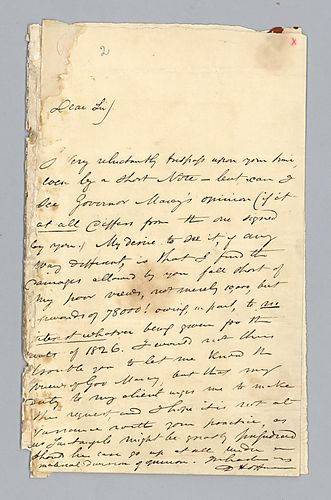 2
x
Dear Sir,
I very reluctantly trespass upon your time
even by a short Note – but can I
see Governor Marcy's opinion (if it
at all differs from the one signed
by you.) My desire to see it, if any
way different, is that I find the
damages allowed by you fall short of
my poor views, not merely
upwards of 78000! owing, in part, to no
interest whatever being given for the
of 1826. I would not thus
trouble you to let me know the
views of Gov Marcy, but that my
duty to my client urges me to make
this request and I hope it is not at
variance with your practice, as
might be greatly prejudiced
should his case go up at all under a
division of opinion. In haste